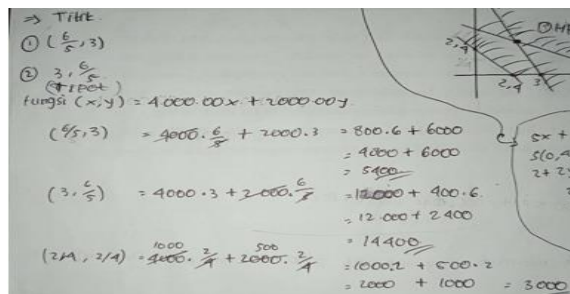 ⇒ Titik
① (6/5, 3)
② 3, 6/5
fungsi (x,y) = 4000.00x + 2000.00y
(6/5, 3) = 4000 . 6/5 + 2000 . 3 = 800.6 + 6000
= 4000 + 6000
= 5400
(3, 6/5) = 4000 . 3 + 2.000 . 6/5 = 12000 + 400.6
= 12.000 + 2400
= 14400
(2/4, 2/4) = 4000 . 2/4 + 2000 . 2/4 = 1000.2 + 500.2
1000 500
= 2000 + 1000 = 3000
2,4
2,4 3
5x +
5(0,4
2 + 2